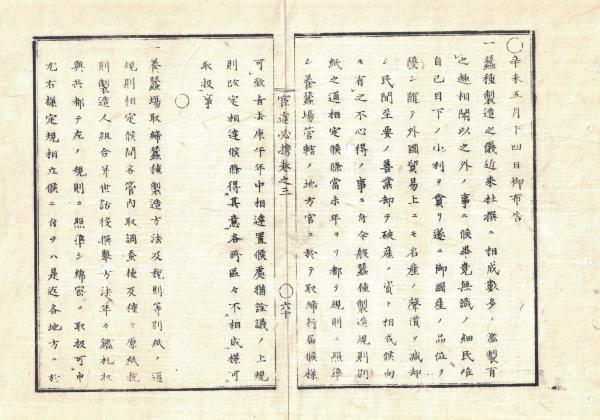 ○辛未五月廿四日御布告
一蚕種製造之儀近来杜撰ニ相成數多ノ濫製有
之趣相聞以之外ノ事ニ候畢竟無識ノ細民唯
自己目下ノ小利ヲ貪リ遂ニ御國産ノ品位ヲ
墜シ隨テ外國貿易上ニモ名産ノ聲價ヲ減却
シ民間至要ノ善業却テ破産ノ資ト相成候向
モ有之不心得ノ事ニ付今般蚕種製造規則別
紙之通相定候條當未年ヨリ都テ規則ニ照準
シ養蚕場管轄ノ地方官ニ於テ取締行届候様
官途必携巻之三
○六十
可致旨去庚午年中相達置候處猶詮議ノ上規
則改定相達候條得其意各所區々不相成様可
取扱事
○
一養蚕場取締蚕種製造方法及税則等別紙ノ通
規則相定候間各管内取調蚕種及種々原紙税
則製造人組合并世話役撰擧方法年々鑑札収
與共都テ左ノ規則ニ照準シ綿密ニ取扱可申
尤右様定規相立候ニ付テハ是迄各地方ニ於